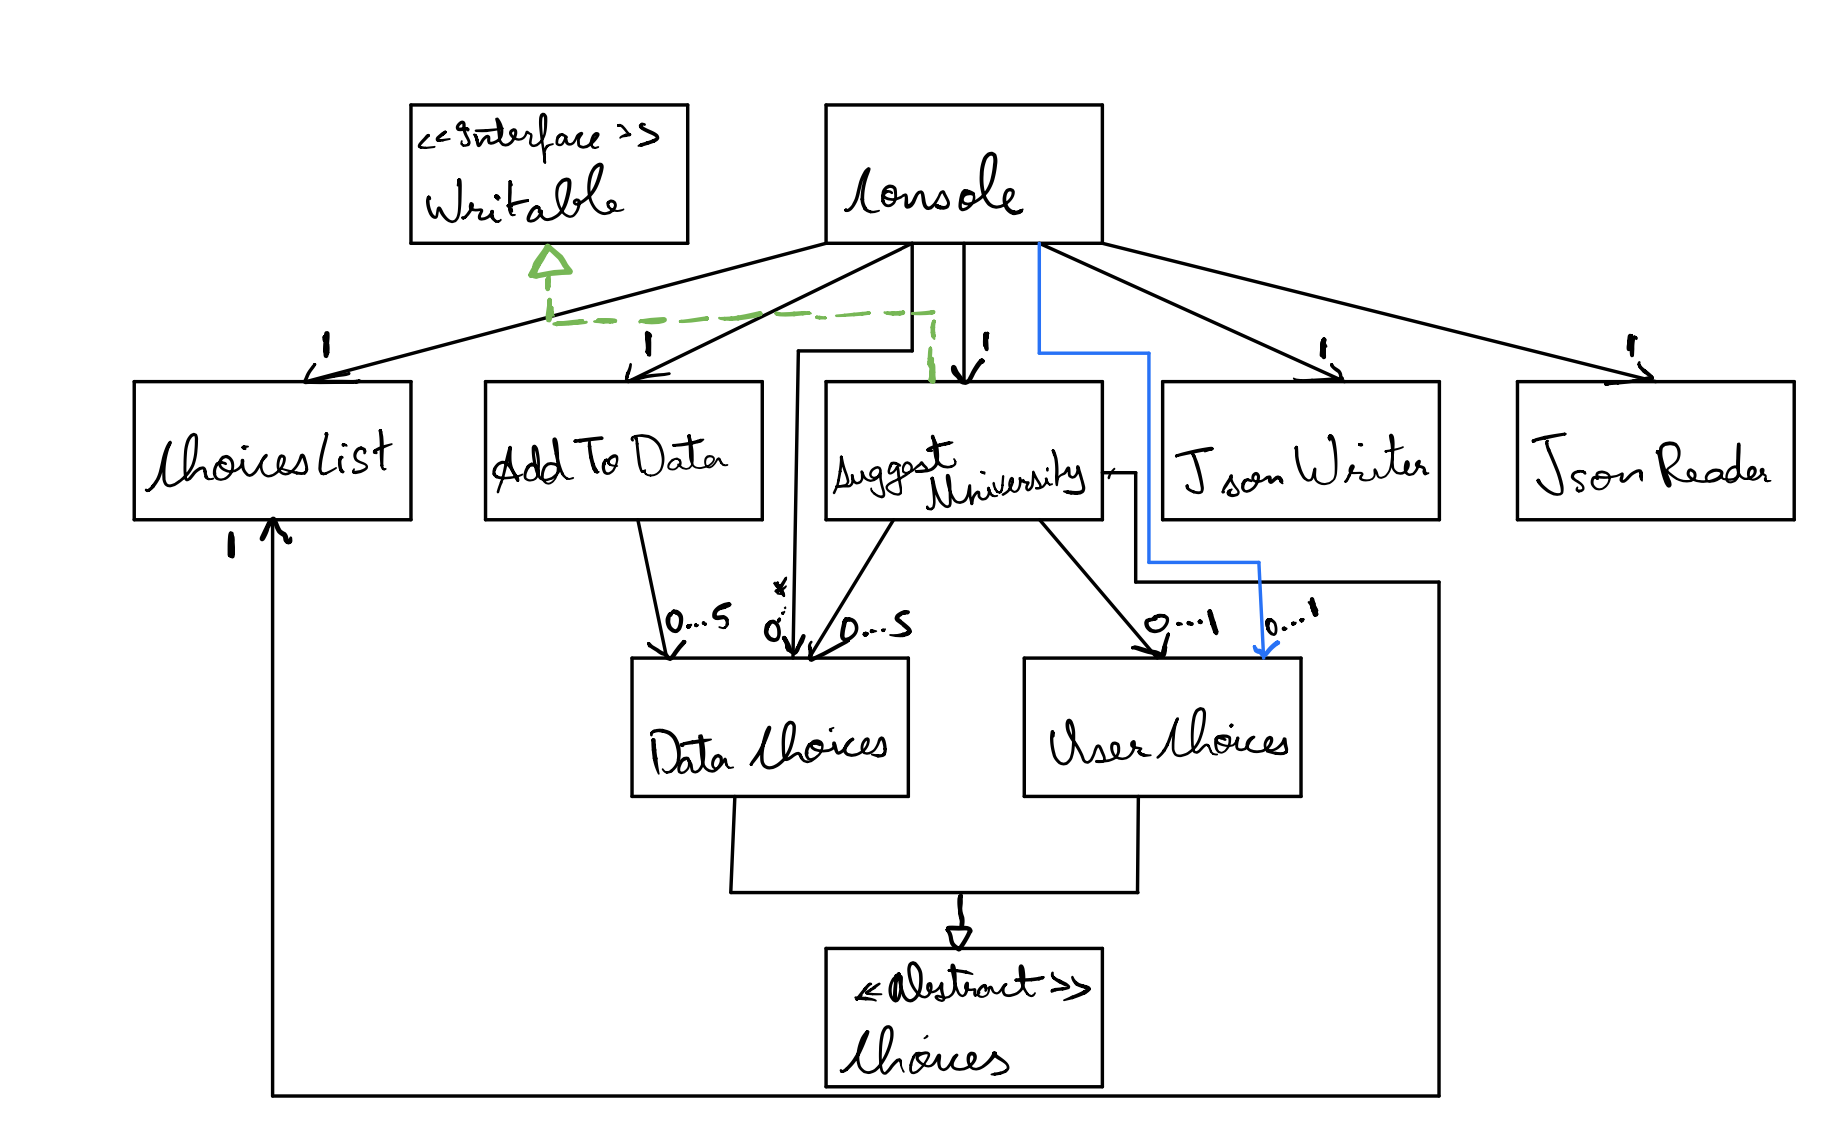 <<Interface>>
Writable
Console
1
1
1
1
1
ChoicesList
Add To Data
Suggest
University
Json Writer
Json Reader
1
0...5
0...*
0...5
0...1
0...1
Data Choices
User Choices
<<Abstract>>
Choices